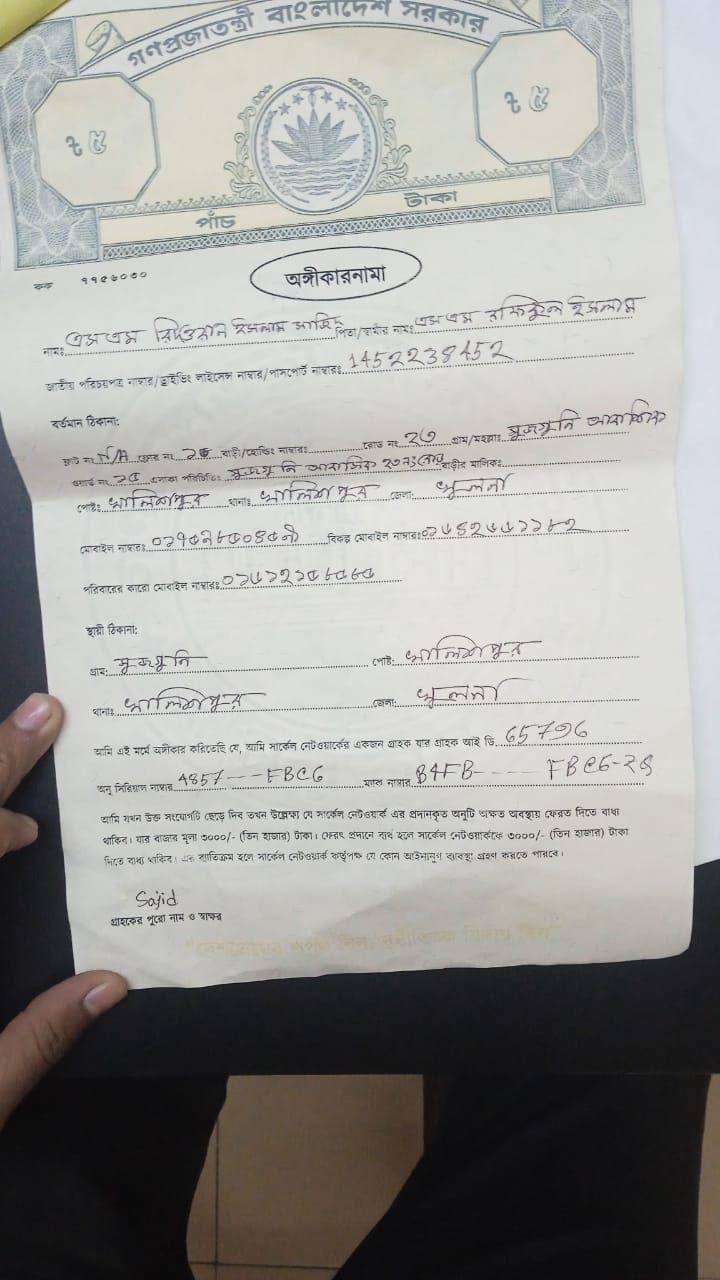 গণপ্রজাতন্ত্রী বাংলাদেশ সরকার
৳ ৫ ৳ ৫
পাঁচ টাকা
কক ৭৭৫৬০৩০
অঙ্গীকারনামা
নামঃ এস এম রিদওয়ান ইসলাম সাজিদ পিতা/স্বামীর নামঃ এস এম রফিকুল ইসলাম
জাতীয় পরিচয়পত্র নাম্বার/ড্রাইভিং লাইসেন্স নাম্বার/পাসপোর্ট নাম্বারঃ 1452238452
বর্তমান ঠিকানা:
ফ্লাট নং N/A ফ্লোর নং বাড়ী/হোল্ডিং নাম্বারঃ রোড নং ২৩ গ্রাম/মহল্লাঃ মুজগুন্নি আবাসিক
ওয়ার্ড নং এলাকা পরিচিতিঃ মুজগুন্নি আবাসিক ২৩নং রোড বাড়ীর মালিকঃ
পোষ্টঃ খালিশপুর থানাঃ খালিশপুর জেলা: খুলনা
মোবাইল নাম্বারঃ বিকল্প মোবাইল নাম্বারঃ
পরিবারের কারো মোবাইল নাম্বারঃ
স্থায়ী ঠিকানা:
গ্রাম: মুজগুন্নি পোষ্ট: খালিশপুর
থানাঃ খালিশপুর জেলা: খুলনা
আমি এই মর্মে অঙ্গীকার করিতেছি যে, আমি সার্কেল নেটওয়ার্কের একজন গ্রাহক যার গ্রাহক আই ডি 65796
অনু সিরিয়াল নাম্বার 4857---FBC6 ম্যাক নাম্বার B4FB----- FBC6-
আমি যখন উক্ত সংযোগটি ছেড়ে দিব তখন উল্লেক্ষ্য যে সার্কেল নেটওয়ার্ক এর প্রদানকৃত অনুটি অক্ষত অবস্থায় ফেরত দিতে বাধ্য
থাকিব। যার বাজার মূল্য ৩০০০/- (তিন হাজার) টাকা। ফেরৎ প্রদানে ব্যর্থ হলে সার্কেল নেটওয়ার্ককে ৩০০০/- (তিন হাজার) টাকা
দিতে বাধ্য থাকিব। এর ব্যতিক্রম হলে সার্কেল নেটওয়ার্ক কর্তৃপক্ষ যে কোন আইনানুগ ব্যবস্থা গ্রহণ করতে পারবে।
Sajid
গ্রাহকের পুরো নাম ও স্বাক্ষর